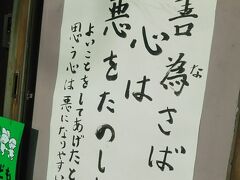 善為さば
な
心は
悪をたのし
よいことをしてあげたと
思う心は悪になりやすい